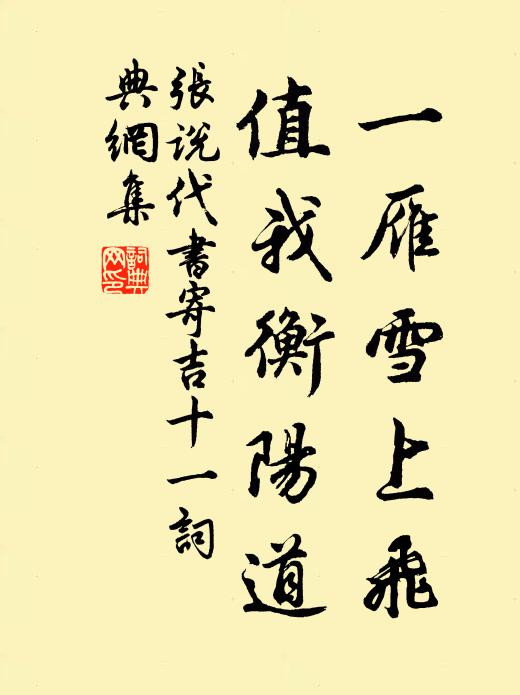 一雁雪上飛
值我衡陽道
張說代書寄吉十一詞
典網集
詞典
網印